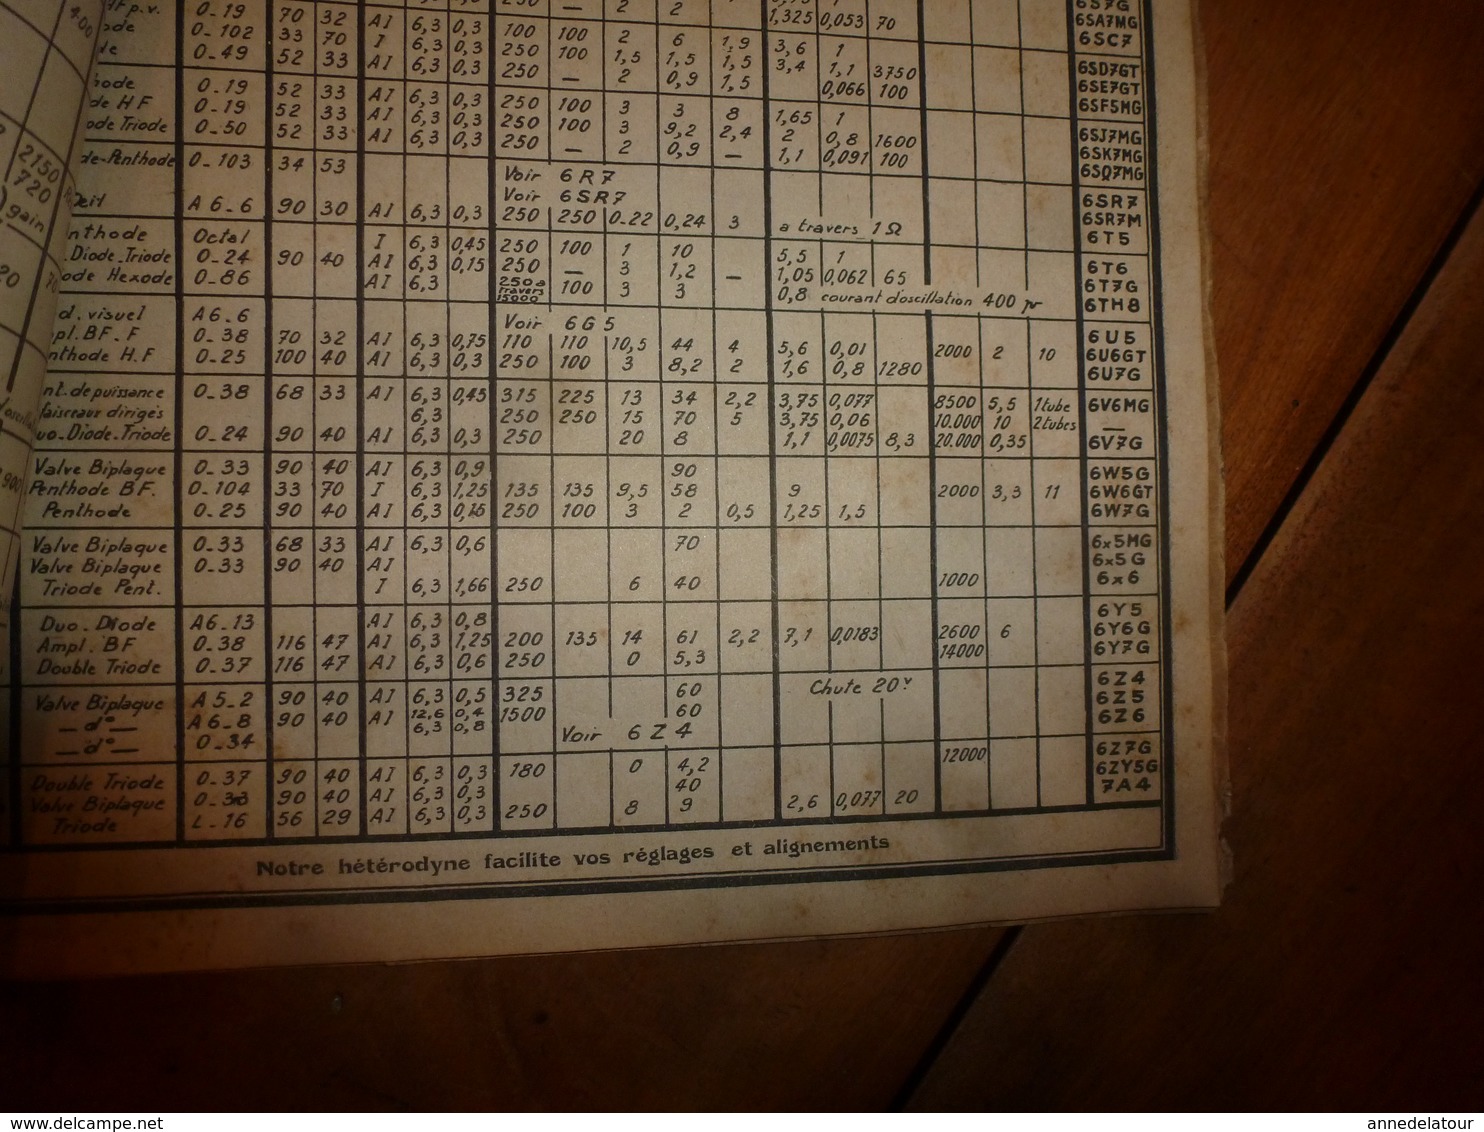 O-19 70 32 AI 6,3 0,3 250 — 2 2 1,325 0,053 70 6SA7MG
O-102 33 70 I 6,3 0,3 100 100 2 6 1,9 3,6 1 6SC7
O-49 52 33 AI 6,3 0,3 250 100 1,5 1,5 1,5 3,4 1,1 3750 6SD7GT
O-19 52 33 AI 6,3 0,3 250 — 2 0,9 1,5 0,066 100 6SE7GT
de HF O-19 52 33 AI 6,3 0,3 250 100 3 3 8 1,65 1 6SF5MG
ode Triode O-50 52 33 AI 6,3 0,3 250 100 3 9,2 2,4 2 0,8 1600 6SJ7MG
250 — 2 0,9 — 1,1 0,091 100 6SK7MG
de-Penthode O-103 34 53 6SQ7MG
Voir 6R7 6SR7
Voir 6SR7 6SR7M
A6-6 90 30 AI 6,3 0,3 250 250 0-22 0,24 3 a travers 1Ω 6T5
nthode Octal I 6,3 0,45 250 100 1 10 5,5 1 6T6
Diode-Triode O-24 90 40 AI 6,3 0,15 250 — 3 1,2 — 1,05 0,062 65 6T7G
ode Hexode O-86 AI 6,3 250 a travers 15000 100 3 3 0,8 courant d'oscillation 400 µ 6TH8
d. visuel A6-6 Voir 6G5 6U5
pl. BF. F O-38 70 32 AI 6,3 0,75 110 110 10,5 44 4 5,6 0,01 2000 2 10 6U6GT
nthode H.F O-25 100 40 AI 6,3 0,3 250 100 3 8,2 2 1,6 0,8 1280 6U7G
nt. de puissance O-38 68 33 AI 6,3 0,45 315 225 13 34 2,2 3,75 0,077 8500 5,5 1tube 6V6MG
faisceaux dirigés 6,3 250 250 15 70 5 3,75 0,06 10.000 10 2tubes —
uo-Diode-Triode O-24 90 40 AI 6,3 0,3 250 20 8 1,1 0,0075 8,3 20.000 0,35 6V7G
Valve Biplaque O-33 90 40 AI 6,3 0,9 90 6W5G
Penthode BF. O-104 33 70 I 6,3 1,25 135 135 9,5 58 9 2000 3,3 11 6W6GT
Penthode O-25 90 40 AI 6,3 0,15 250 100 3 2 0,5 1,25 1,5 6W7G
Valve Biplaque O-33 68 33 AI 6,3 0,6 70 6x5MG
Valve Biplaque O-33 90 40 AI 6x5G
Triode Pent. I 6,3 1,66 250 6 40 1000 6x6
Duo-Diode A6-13 AI 6,3 0,8 6Y5
Ampl. BF O-38 116 47 AI 6,3 1,25 200 135 14 61 2,2 7,1 0,0183 2600 6 6Y6G
Double Triode O-37 116 47 AI 6,3 0,6 250 0 5,3 14000 6Y7G
Valve Biplaque A5-2 90 40 AI 6,3 0,5 325 60 Chute 20v 6Z4
— d° — A6-8 90 40 AI 12,6 0,4 6,3 0,8 1500 60 6Z5
— d° — O-34 Voir 6Z4 6Z6
Double Triode O-37 90 40 AI 6,3 0,3 180 0 4,2 12000 6Z7G
Valve Biplaque O-33 90 40 AI 6,3 0,3 40 6ZY5G
Triode L-16 56 29 AI 6,3 0,3 250 8 9 2,6 0,077 20 7A4
Notre hétérodyne facilite vos réglages et alignements
2150
720
gain
www.delcampe.net
annedelatour